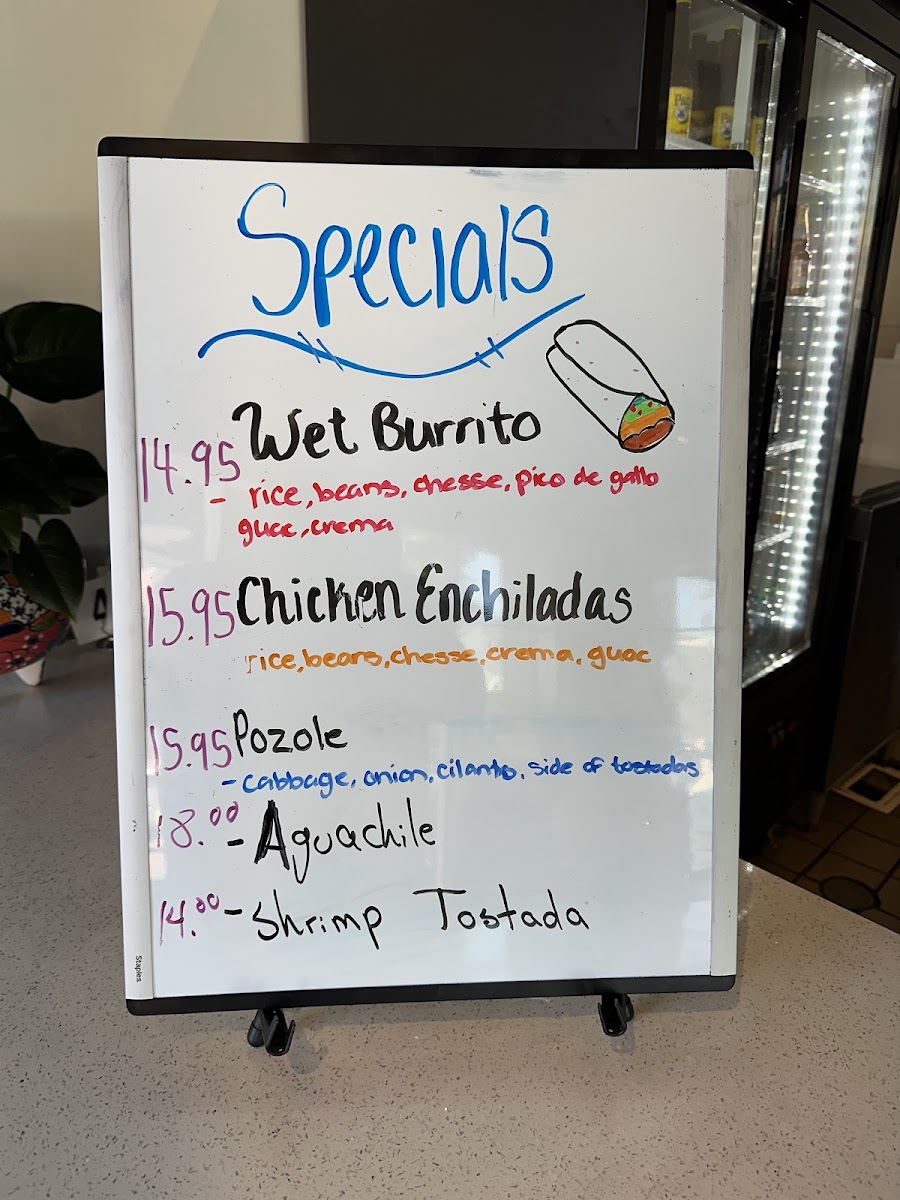 Specials
Wet Burrito
14.95
- rice, beans, chesse, pico de gallo
guac, crema
15.95 Chicken Enchiladas
rice, beans, chesse, crema, guac
15.95 Pozole
- cabbage, onion, cilanto, side of tostadas
18.00 - Aguachile
14.00 - Shrimp Tostada
Staples